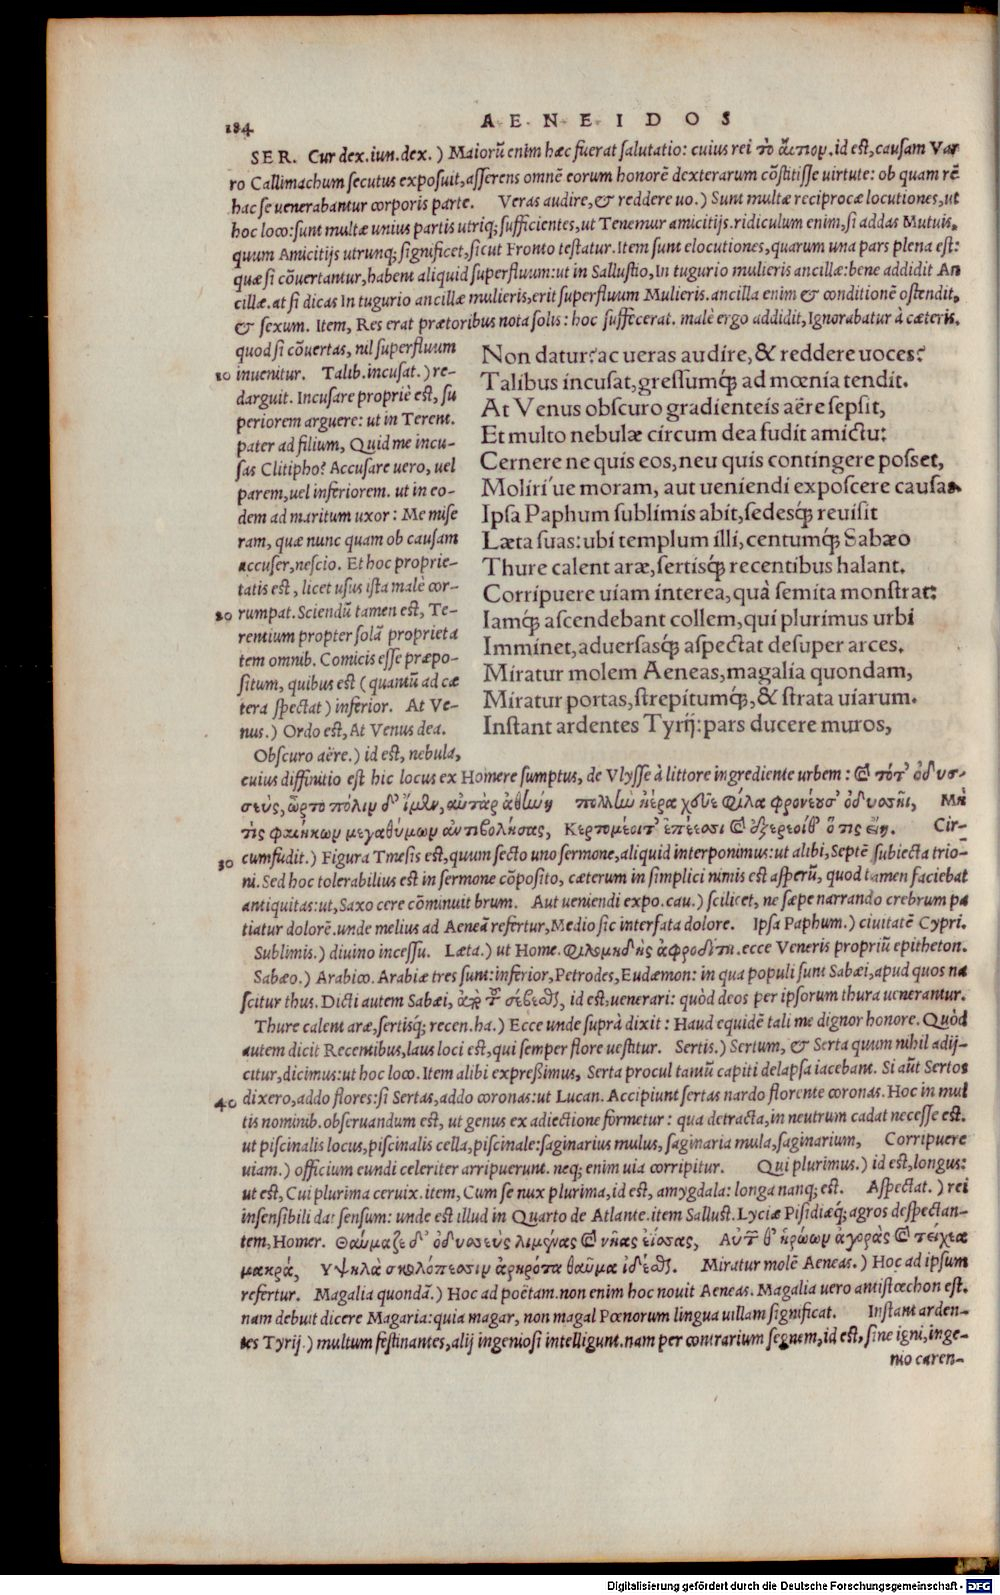 184
AENEIDOS
SER. Cur dex.iun.dex.) Maiorũ enim hæc fuerat salutatio: cuius rei τὸ αἴτιον. id est, causam Var
ro Callimachum secutus exposuit, asserens omnẽ eorum honorẽ dexterarum cõstitisse uirtute: ob quam rẽ
hac se uenerabantur corporis parte. Veras audire, & reddere uo.) Sunt multæ reciprocæ locutiones, ut
hoc loco: sunt multæ unius partis utriq; sufficientes, ut Tenemur amicitijs. ridiculum enim, si addas Mutuis,
quum Amicitijs utrunq; significet, sicut Fronto testatur. Item sunt elocutiones, quarum una pars plena est:
quæ si cõuertantur, habent aliquid superfluum: ut in Sallustio, In tugurio mulieris ancillæ: bene addidit An
cillæ. at si dicas In tugurio ancillæ mulieris, erit superfluum Mulieris. ancilla enim & conditionẽ ostendit,
& sexum. Item, Res erat prætoribus nota solis: hoc suffecerat. malè ergo addidit, Ignorabatur à cæteris.
quod si cõuertas, nil superfluum
10 inuenitur. Talib. incusat.) re-
darguit. Incusare propriè est, su
periorem arguere: ut in Terent.
pater ad filium, Quid me incu-
sas Clitipho? Accusare uero, uel
parem, uel inferiorem. ut in eo-
dem ad maritum uxor: Me mise
ram, quæ nunc quam ob causam
accuser, nescio. Et hoc proprie-
tatis est, licet usus ista malè cor-
20 rumpat. Sciendũ tamen est, Te-
rentium propter solã proprieta
tem omnib. Comicis esse præpo-
situm, quibus est (quantũ ad cæ
tera spectat) inferior. At Ve-
nus.) Ordo est, At Venus dea.
Obscuro aëre.) id est, nebula,
Non datur? ac ueras audire, & reddere uoces?
Talibus incusat, gressumq́; ad mœnia tendit.
At Venus obscuro gradienteis aëre sepsit,
Et multo nebulæ circum dea fudit amictu:
Cernere ne quis eos, neu quis contingere posset,
Moliri´ue moram, aut ueniendi exposcere causas.
Ipsa Paphum sublimis abit, sedesq́; reuisit
Læta suas: ubi templum illi, centumq́; Sabæo
Thure calent aræ, sertisq́; recentibus halant.
Corripuere uiam interea, quà semita monstrat:
Iamq́; ascendebant collem, qui plurimus urbi
Imminet, aduersasq́; aspectat desuper arces.
Miratur molem Aeneas, magalia quondam,
Miratur portas, strepitumq́;, & strata uiarum.
Instant ardentes Tyrij: pars ducere muros,
cuius diffinitio est hic locus ex Homere sumptus, de Vlysse à littore ingrediente urbem: καὶ τότ᾽ ὀδυσ-
σεὺς, ὦρτο πόλιν δ᾽ ἴμεν, αὐτὰρ ἀθήνη πολλὴν ἠέρα χεῦε φίλα φρονέουσ᾽ ὀδυσσῆι, Μή
τὶς φαιήκων μεγαθύμων ἀντιβολήσας, Κερτομέοιτ᾽ ἐπέεσσι καὶ ἐξερέοιθ᾽ ὅ τις εἴη. Cir-
30 cumfudit.) Figura Tmesis est, quum secto uno sermone, aliquid interponimus: ut alibi, Septẽ subiecta trio-
ni. Sed hoc tolerabilius est in sermone cõposito, cæterum in simplici nimis est asperũ, quod tamen faciebat
antiquitas: ut, Saxo cere cõminuit brum. Aut ueniendi expo.cau.) scilicet, ne sæpe narrando crebrum pa
tiatur dolorẽ. unde melius ad Aeneã refertur, Medio sic interfata dolore. Ipsa Paphum.) ciuitatẽ Cypri.
Sublimis.) diuino incessu. Læta.) ut Home. φιλομηδὴς ἀφροδίτη. ecce Veneris propriũ epitheton.
Sabæo.) Arabico. Arabiæ tres sunt: inferior, Petrodes, Eudæmon: in qua populi sunt Sabæi, apud quos na
scitur thus. Dicti autem Sabæi, ἀπὸ τοῦ σέβεσθαι, id est, uenerari: quòd deos per ipsorum thura uenerantur.
Thure calent aræ, sertisq́; recen.ha.) Ecce unde suprà dixit: Haud equidẽ tali me dignor honore. Quòd
autem dicit Recentibus, laus loci est, qui semper flore uestitur. Sertis.) Sertum, & Serta quum nihil adij-
citur, dicimus: ut hoc loco. Item alibi expreßimus, Serta procul tantũ capiti delapsa iacebant. Si aũt Sertos
40 dixero, addo flores: si Sertas, addo coronas: ut Lucan. Accipiunt sertas nardo florente coronas. Hoc in mul
tis nominib. obseruandum est, ut genus ex adiectione formetur: qua detracta, in neutrum cadat necesse est.
ut piscinalis locus, piscinalis cella, piscinale: saginarius mulus, saginaria mula, saginarium, Corripuere
uiam.) officium eundi celeriter arripuerunt. neq; enim uia corripitur. Qui plurimus.) id est, longus:
ut est, Cui plurima ceruix. item, Cum se nux plurima, id est, amygdala: longa nanq; est. Aspectat.) rei
insensibili dat sensum: unde est illud in Quarto de Atlante. item Sallust. Lyciæ Pisidiæq́; agros despectan-
tem, Homer. Θαύμαζε δ᾽ ὀδυσσεὺς λιμένας καὶ νῆας ἐΐσσας, Αὐτῶν θ᾽ ἡρώων ἀγορὰς καὶ τείχεα
μακρά, Υψηλὰ σκολόπεσσιν ἀρηρότα θαῦμα ἰδέσθαι. Miratur molẽ Aeneas.) Hoc ad ipsum
refertur. Magalia quondã.) Hoc ad poëtam. non enim hoc nouit Aeneas. Magalia uero antistœchon est.
nam debuit dicere Magaria: quia magar, non magal Pœnorum lingua uillam significat. Instant arden-
tes Tyrij.) multum festinantes, alij ingeniosi intelligunt. nam per contrarium segnem, id est, sine igni, inge-
nio caren-
Digitalisierung gefördert durch die Deutsche Forschungsgemeinschaft - DFG